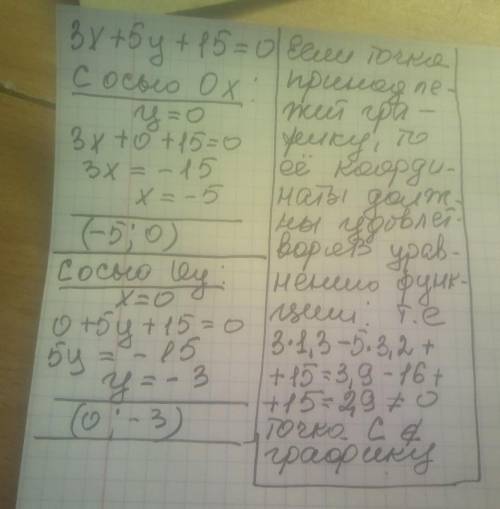 3x+5y+15=0
С осью Ox:
y=0
3x+0+15=0
3x = -15
x = -5
(-5; 0)
С осью Oy:
x=0
0+5y+15=0
5y = -15
y = -3
(0; -3)
если точка
принадле-
жит гра-
фику, то
её коорди-
наты долж-
ны удовлет-
ворять урав-
нению функ-
ции: т.е
3·1,3-5·3,2+
+15=3,9-16+
+15=2,9≠0
точка C ∉
графику